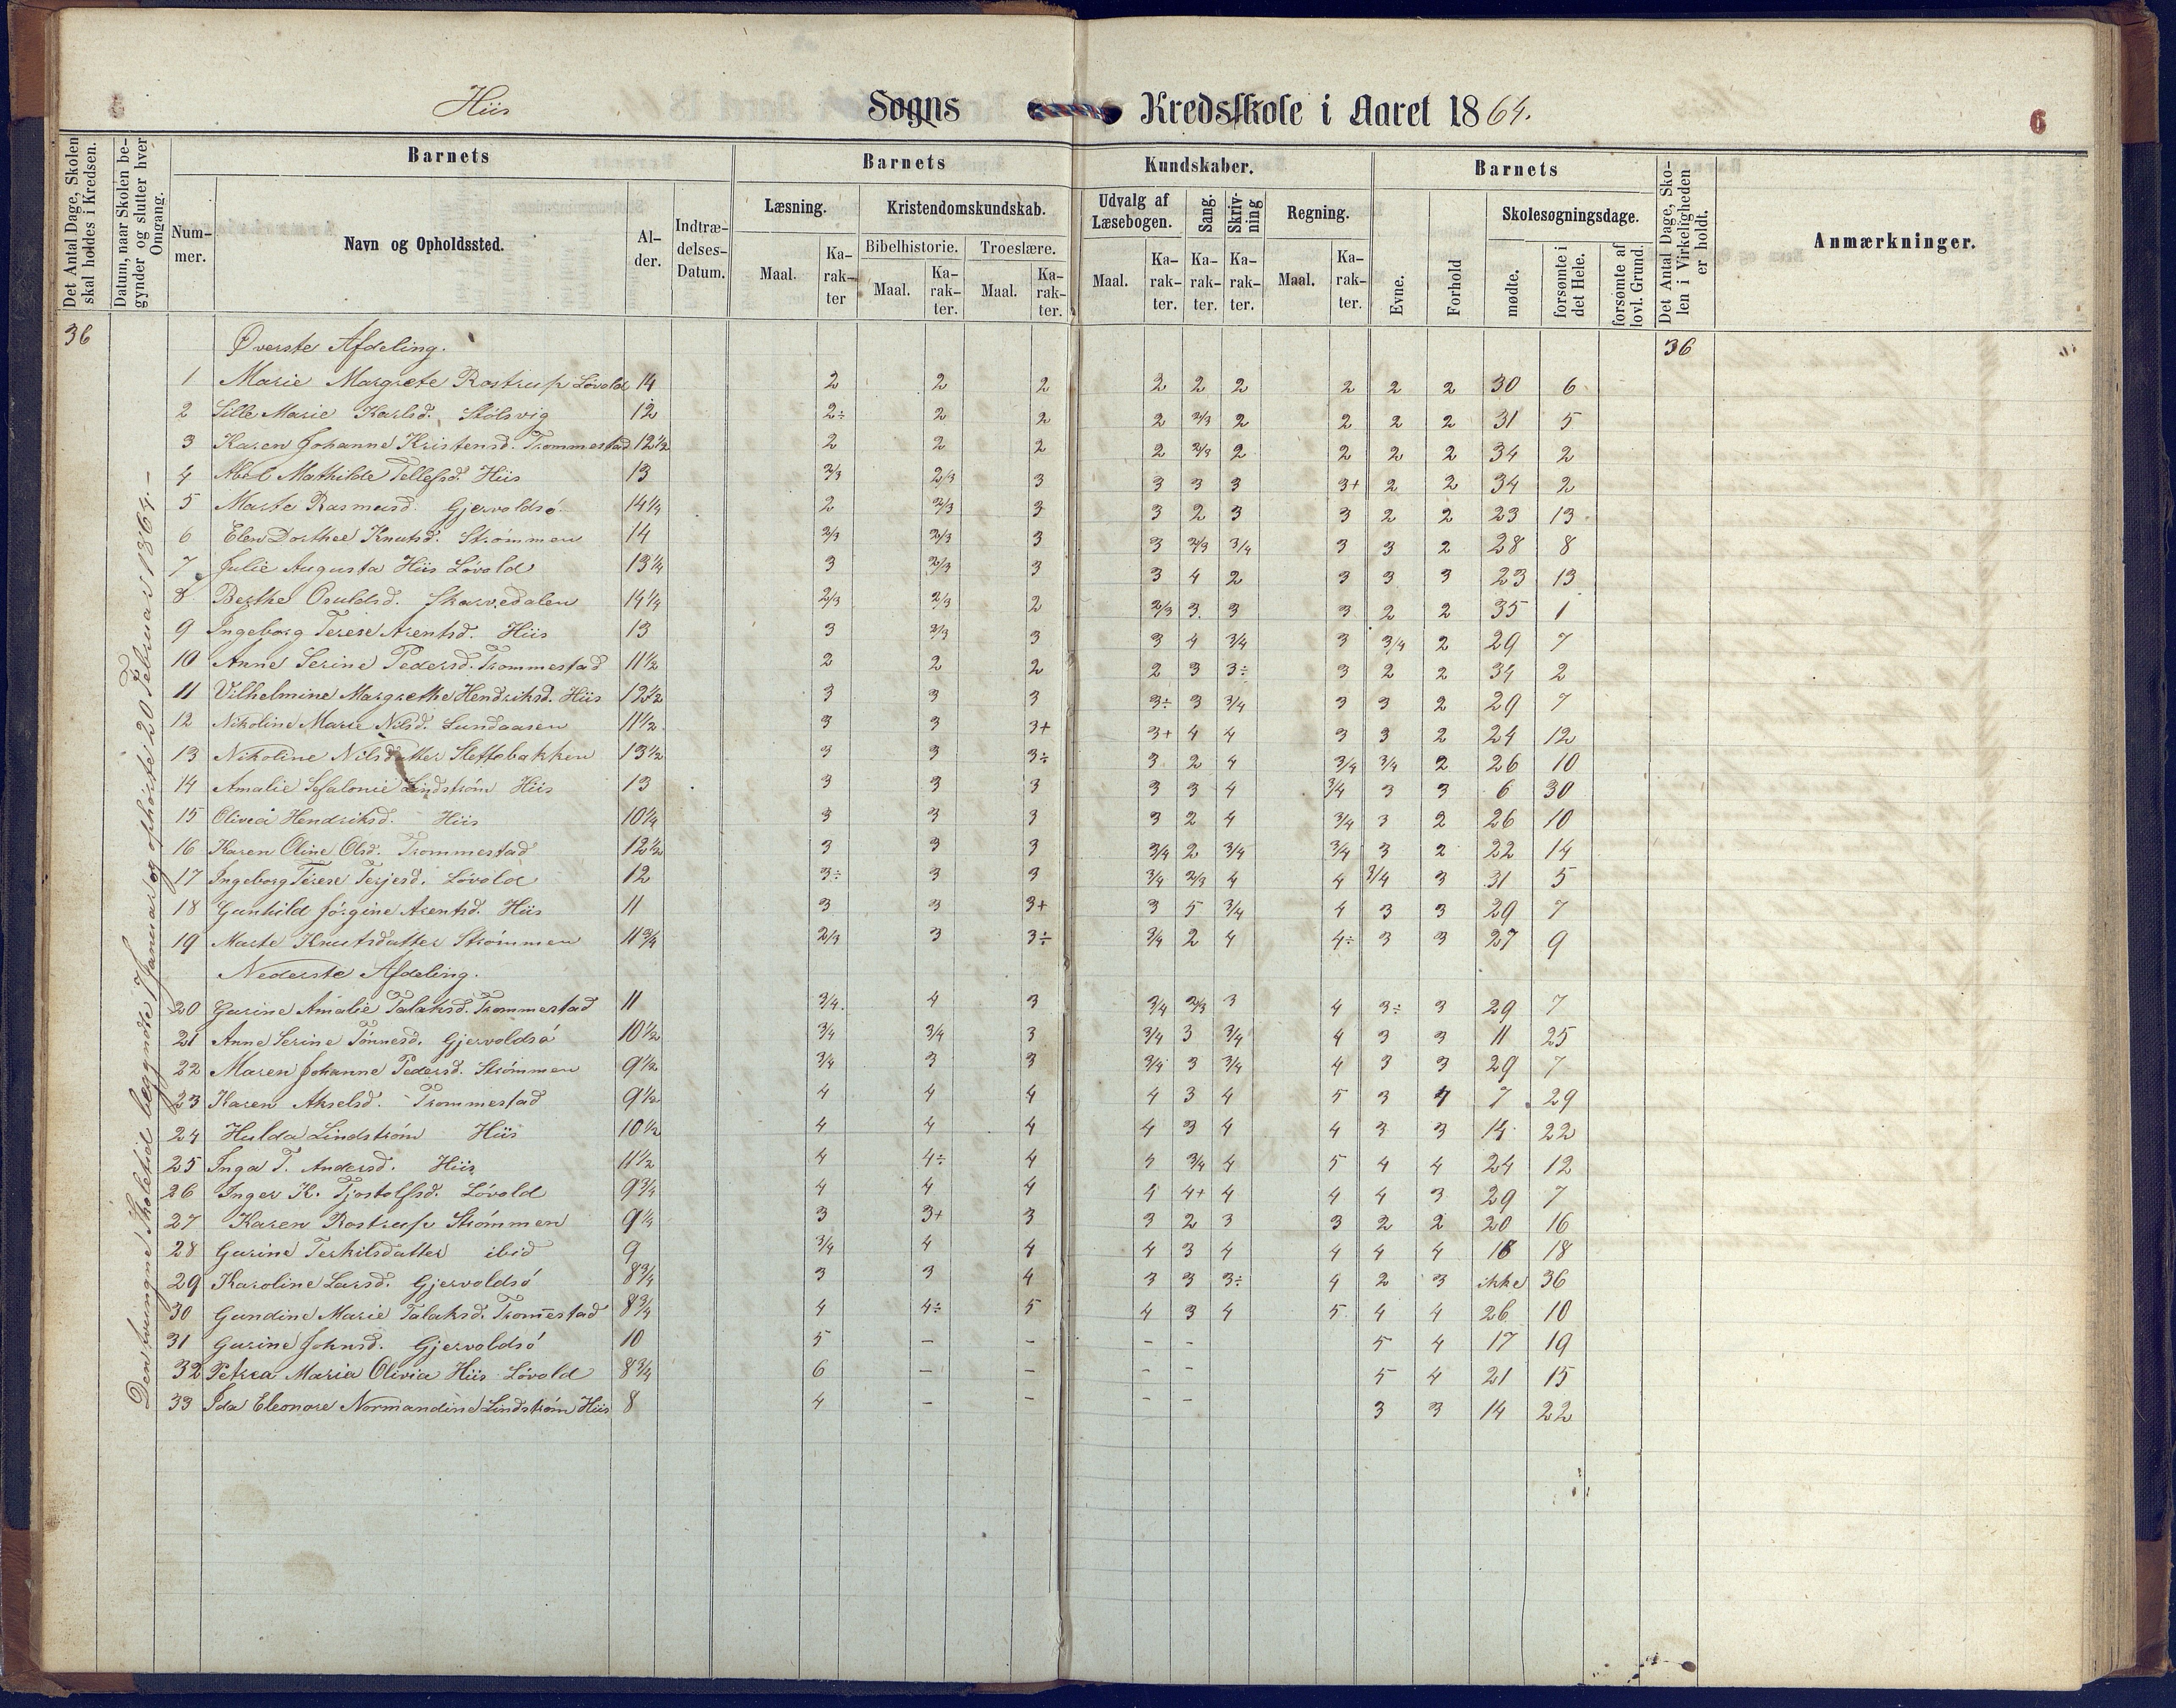 Hiis Sogns Kredsskole i Aaret 1864.
6
Det Antal Dage, Skolen skal holdes i Kredsen.
Datum, naar Skolen begynder og slutter hver Omgang.
Barnets
Nummer.
Navn og Opholdssted.
Alder.
Indtrædelses-Datum.
Barnets Kundskaber.
Læsning.
Maal.
Karakter
Kristendomskundskab.
Bibelhistorie.
Maal.
Karakter.
Troeslære.
Maal.
Karakter.
Udvalg af Læsebogen.
Maal.
Karakter.
Sang.
Karakter.
Skrivning
Karakter.
Regning.
Maal.
Karakter.
Barnets
Evne.
Forhold
Skolesøgningsdage.
mødte.
forsømte i det Hele.
forsømte af lovl. Grund.
Det Antal Dage, Skolen i Virkeligheden er holdt.
Anmærkninger.
Den tvungne Skoletid begyndte 7 Januar og ophørte 20 Februar 1864.-
36 Øverste Afdeling. 36
1 Marie Margrete Rostrup Løvold 14 2 2 2 2 2 2 2 2 2 30 6
2 Sille Marie Karlsd. Stølsvig 12 2÷ 2 2 2 2/3 2 2 2 2 31 5
3 Karen Johanne Kristensd. Trommestad 12½ 2 2 2 2 2/3 2 2 2 2 34 2
4 Abel Mathilde Tellefsd. Hiis 13 2/3 2/3 3 3 3 3 3+ 2 2 34 2
5 Marte Rasmusd. Gjervoldsø 14¼ 2 2/3 3 3 2 3 3 2 2 23 13
6 Elen Dorthee Knutsd. Strømmen 14 2/3 2/3 3 3 2/3 3/4 3 3 2 28 8
7 Julie Augusta Hiis Løvold 13¼ 3 2/3 3 3 4 2 3 3 3 23 13
8 Berthe Osuldsd. Skarvedalen 14¼ 2/3 2/3 2 2/3 3 3 3 2 2 35 1
9 Ingeborg Terese Arentsd. Hiis 13 3 2/3 3 3 4 3/4 3 3/4 2 29 7
10 Anne Serine Pedersd. Trommestad 11½ 2 2 2 2 3 3÷ 3 2 2 34 2
11 Vilhelmine Margrethe Hendriksd. Hiis 12½ 3 3 3 3÷ 3 3/4 3 3 2 29 7
12 Nikoline Marie Nilsd. Lundaasen 11½ 3 3 3+ 3+ 4 4 3 3 2 24 12
13 Nikoline Nilsdatter Slettebakken 13½ 3 3 3÷ 3 2 4 3/4 3/4 2 26 10
14 Amalie Sefalonie Lindstrøm Hiis 13 3 3 3 3 3 4 3/4 3 3 6 30
15 Olivia Hendriksd. Hiis 10¼ 3 3 3 3 2 4 3/4 3 2 26 10
16 Karen Oline Olsd. Trommestad 12½ 3 3 3 3/4 2 3/4 3/4 3 2 22 14
17 Ingeborg Terese Terjesd. Løvold 12 3÷ 3 3 3/4 2/3 4 4 3/4 3 31 5
18 Gunhild Jørgine Arentsd. Hiis 11 3 3 3+ 3 5 3/4 4 3 3 29 7
19 Marte Knutsdatter Strømmen 11¾ 2/3 3 3÷ 3/4 2 4 4÷ 3 3 27 9
Nederste Afdeling.
20 Gurine Amalie Talaksd. Trommestad 11 3/4 4 3 3/4 2/3 3 4 3÷ 3 29 7
21 Anne Serine Tønnesd. Gjervoldsø 10½ 3/4 3/4 3 3/4 3 3/4 4 3 3 11 25
22 Maren Johanne Pedersd. Strømmen 9½ 3/4 3 3 3/4 3 3/4 4 3 3 29 7
23 Karen Akselsd. Trommestad 9½ 4 4 4 4 3 4 5 3 4 7 29
24 Hulda Lindstrøm Hiis 10½ 4 4 4 4 3 4 4 3 3 14 22
25 Inga T. Andersd. Hiis 11½ 4 4÷ 4 4 3/4 4 5 4 4 24 12
26 Inger K. Tjostolfsd. Løvold 9¾ 4 4 4 4 4+ 4 4 4 3 29 7
27 Karen Rostrup Strømmen 9¼ 3 3+ 3 3 2 3 3 2 2 20 16
28 Gurine Terkilsdatter ibid 9 3/4 4 4 4 3 4 4 4 4 18 18
29 Karoline Larsd. Gjervoldsø 8¾ 3 3 4 3 3 3÷ 4 2 3 ikke 36
30 Gundine Marie Talaksd. Trom̅estad 8¾ 4 4÷ 5 4 3 4 5 4 4 26 10
31 Gurine Johnsd. Gjervoldsø 10 5 - - - - 5 4 17 19
32 Petrea Maria Olivia Hiis Løvold 8¾ 6 - - - - 5 4 21 15
33 Ida Eleonore Normandine Lindstrøm Hiis 8 4 - - - - 3 3 14 22